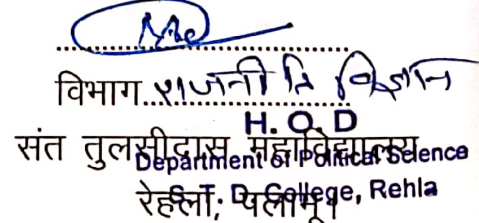 विभाग राजनीति विज्ञान
H. O. D
संत तुलसीदास महाविद्यालय
Department of Political Science
रेहला, पलामू।
S. T. D. College, Rehla